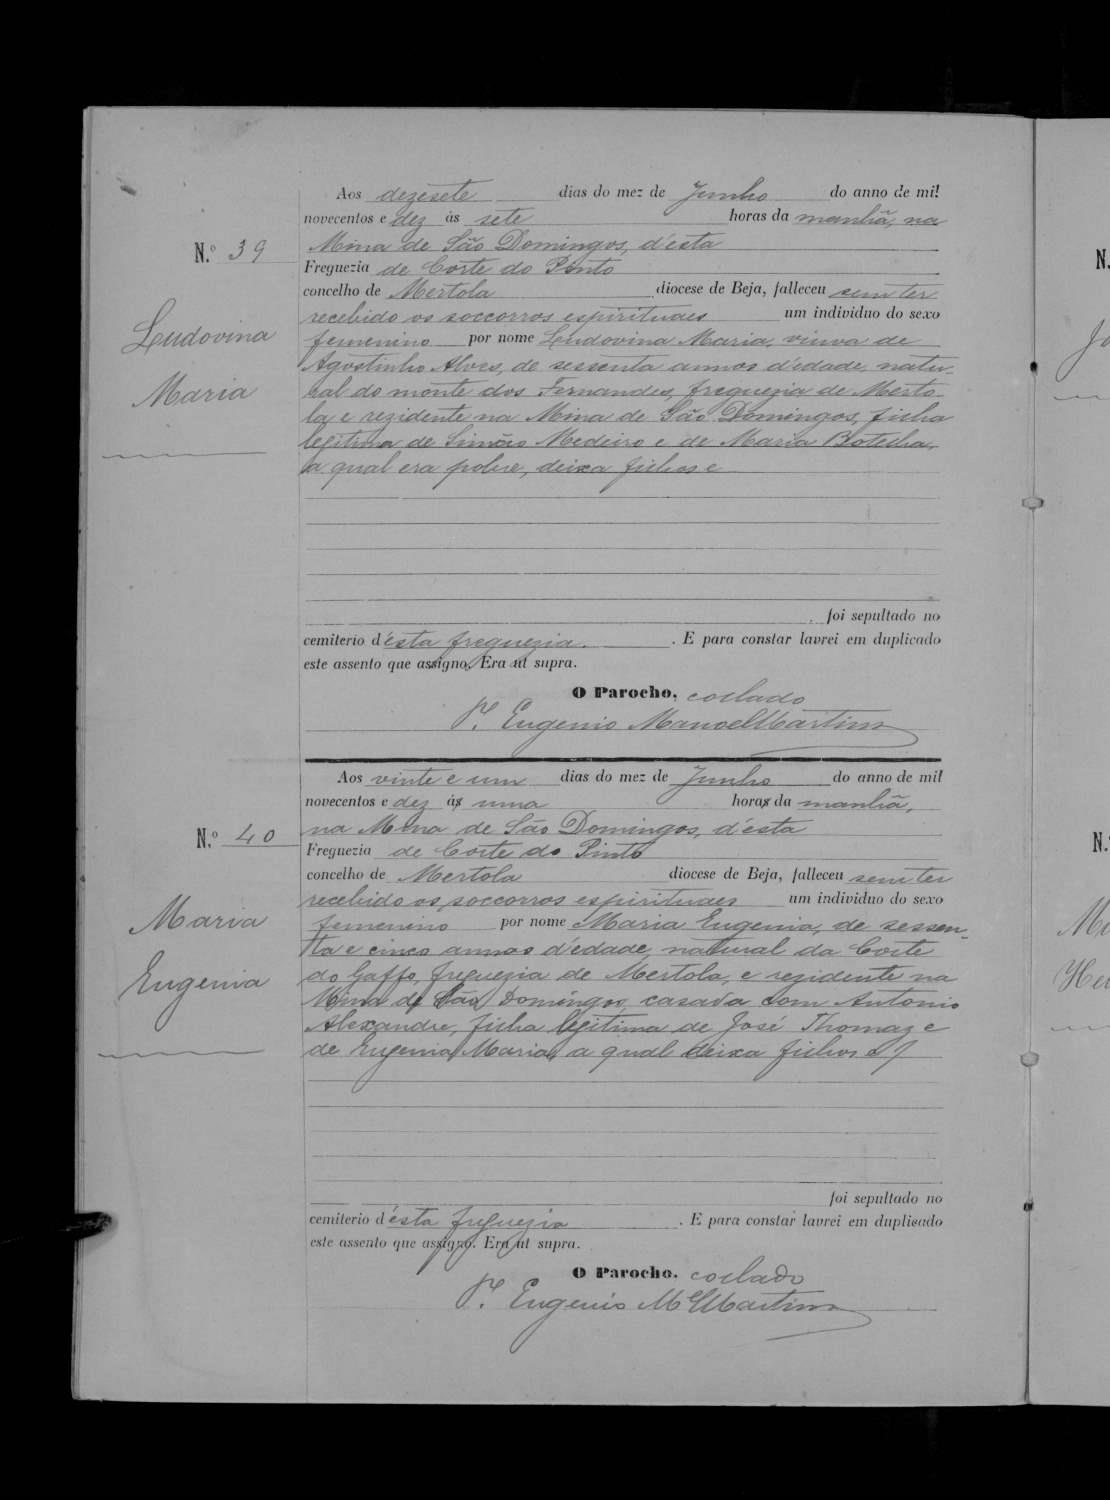 Aos dezesete dias do mez de Junho do anno de mil
novecentos e dez ás sete horas da manhã, na
N.º 39
Mina de São Domingos, d'esta
Freguezia de Corte do Pinto
concelho de Mertola diocese de Beja, falleceu sem ter
recebido os soccorros espirituaes um individuo do sexo
Ludovina
femenino por nome Ludovina Maria, viuva de
Agostinho Alves, de sessenta annos d'edade, natu-
Maria
ral do monte dos Fernandes, freguezia de Merto-
la e rezidente na Mina de São Domingos, filha
legitima de Simão Medeiro e de Maria Botelha,
a qual era pobre, deixa filhos e
foi sepultado no
cemiterio d'ésta freguezia. E para constar lavrei em duplicado
este assento que assigno. Era ut supra.
O Parocho, collado
P. Eugenio Manoel Martins
Aos vinte e um dias do mez de Junho do anno de mil
novecentos e dez ás uma horas da manhã,
N.º 40
na Mina de São Domingos, d'ésta
Freguezia de Corte do Pinto
concelho de Mertola diocese de Beja, falleceu sem ter
recebido os soccorros espirituaes um individuo do sexo
Maria
femenino por nome Maria Eugenia, de sessen-
ta e cinco annos d'edade, natural da Corte
Eugenia
do Gaffo, freguezia de Mertola, e rezidente na
Mina de São Domingos, casada com Antonio
Alexandre, filha legitima de José Thomaz e
de Eugenia Maria, a qual deixa filhos e
foi sepultado no
cemiterio d'ésta freguezia. E para constar lavrei em duplicado
este assento que assigno. Era ut supra.
O Parocho, collado
P. Eugenio M Martins
N.
N.º